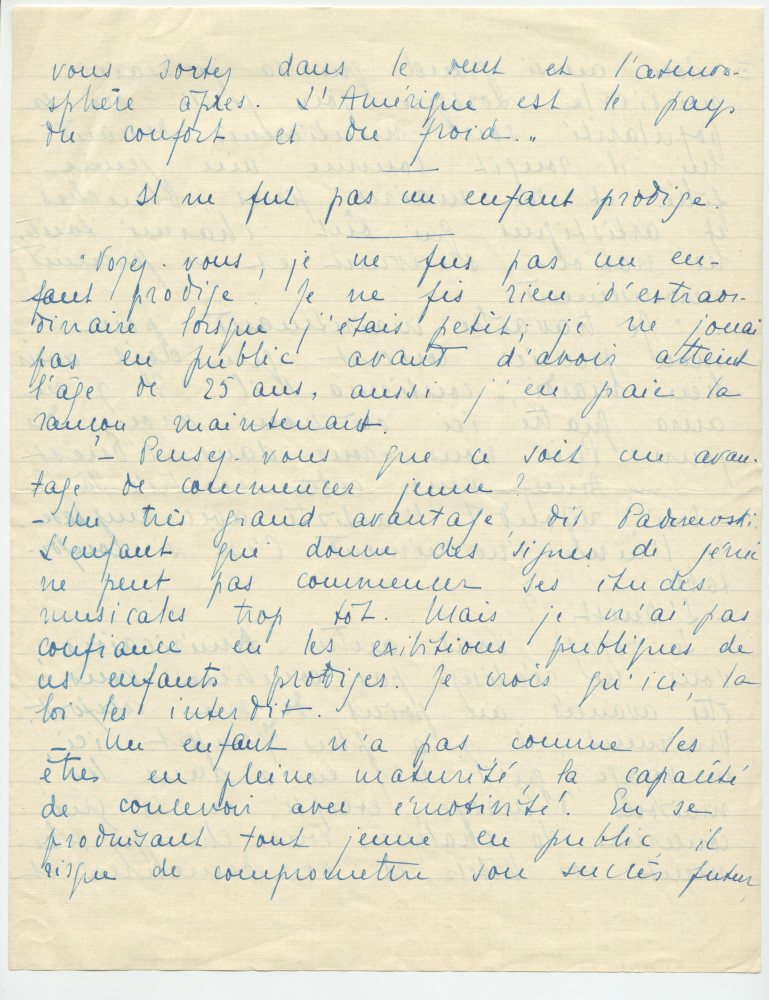 vous sortez dans le vent et l'atmos-
sphère âpres. L'Amérique est le pays
du confort et du froid...
Il ne fut pas un enfant prodige.
- Voyez-vous, je ne fus pas un en-
fant prodige. Je ne fis rien d'extraor-
dinaire lorsque j'étais petit; je ne jouai
pas en public avant d'avoir atteint
l'âge de 25 ans, aussi j'en paie la
rançon maintenant.
- Pensez-vous que ce soit un avan-
tage de commencer jeune?
- Un très grand avantage, dit Paderewski.
L'enfant qui donne des signes de génie
ne peut pas commencer ses études
musicales trop tôt. Mais je n'ai pas
confiance en les exibitions publiques de
ces enfants prodiges. Je crois qu'ici, la
loi les interdit.
- Un enfant n'a pas comme les
êtres en pleine maturité, la capacité
de concevoir avec émotivité. En se
produisant tout jeune en public, il
risque de compromettre son succès futur